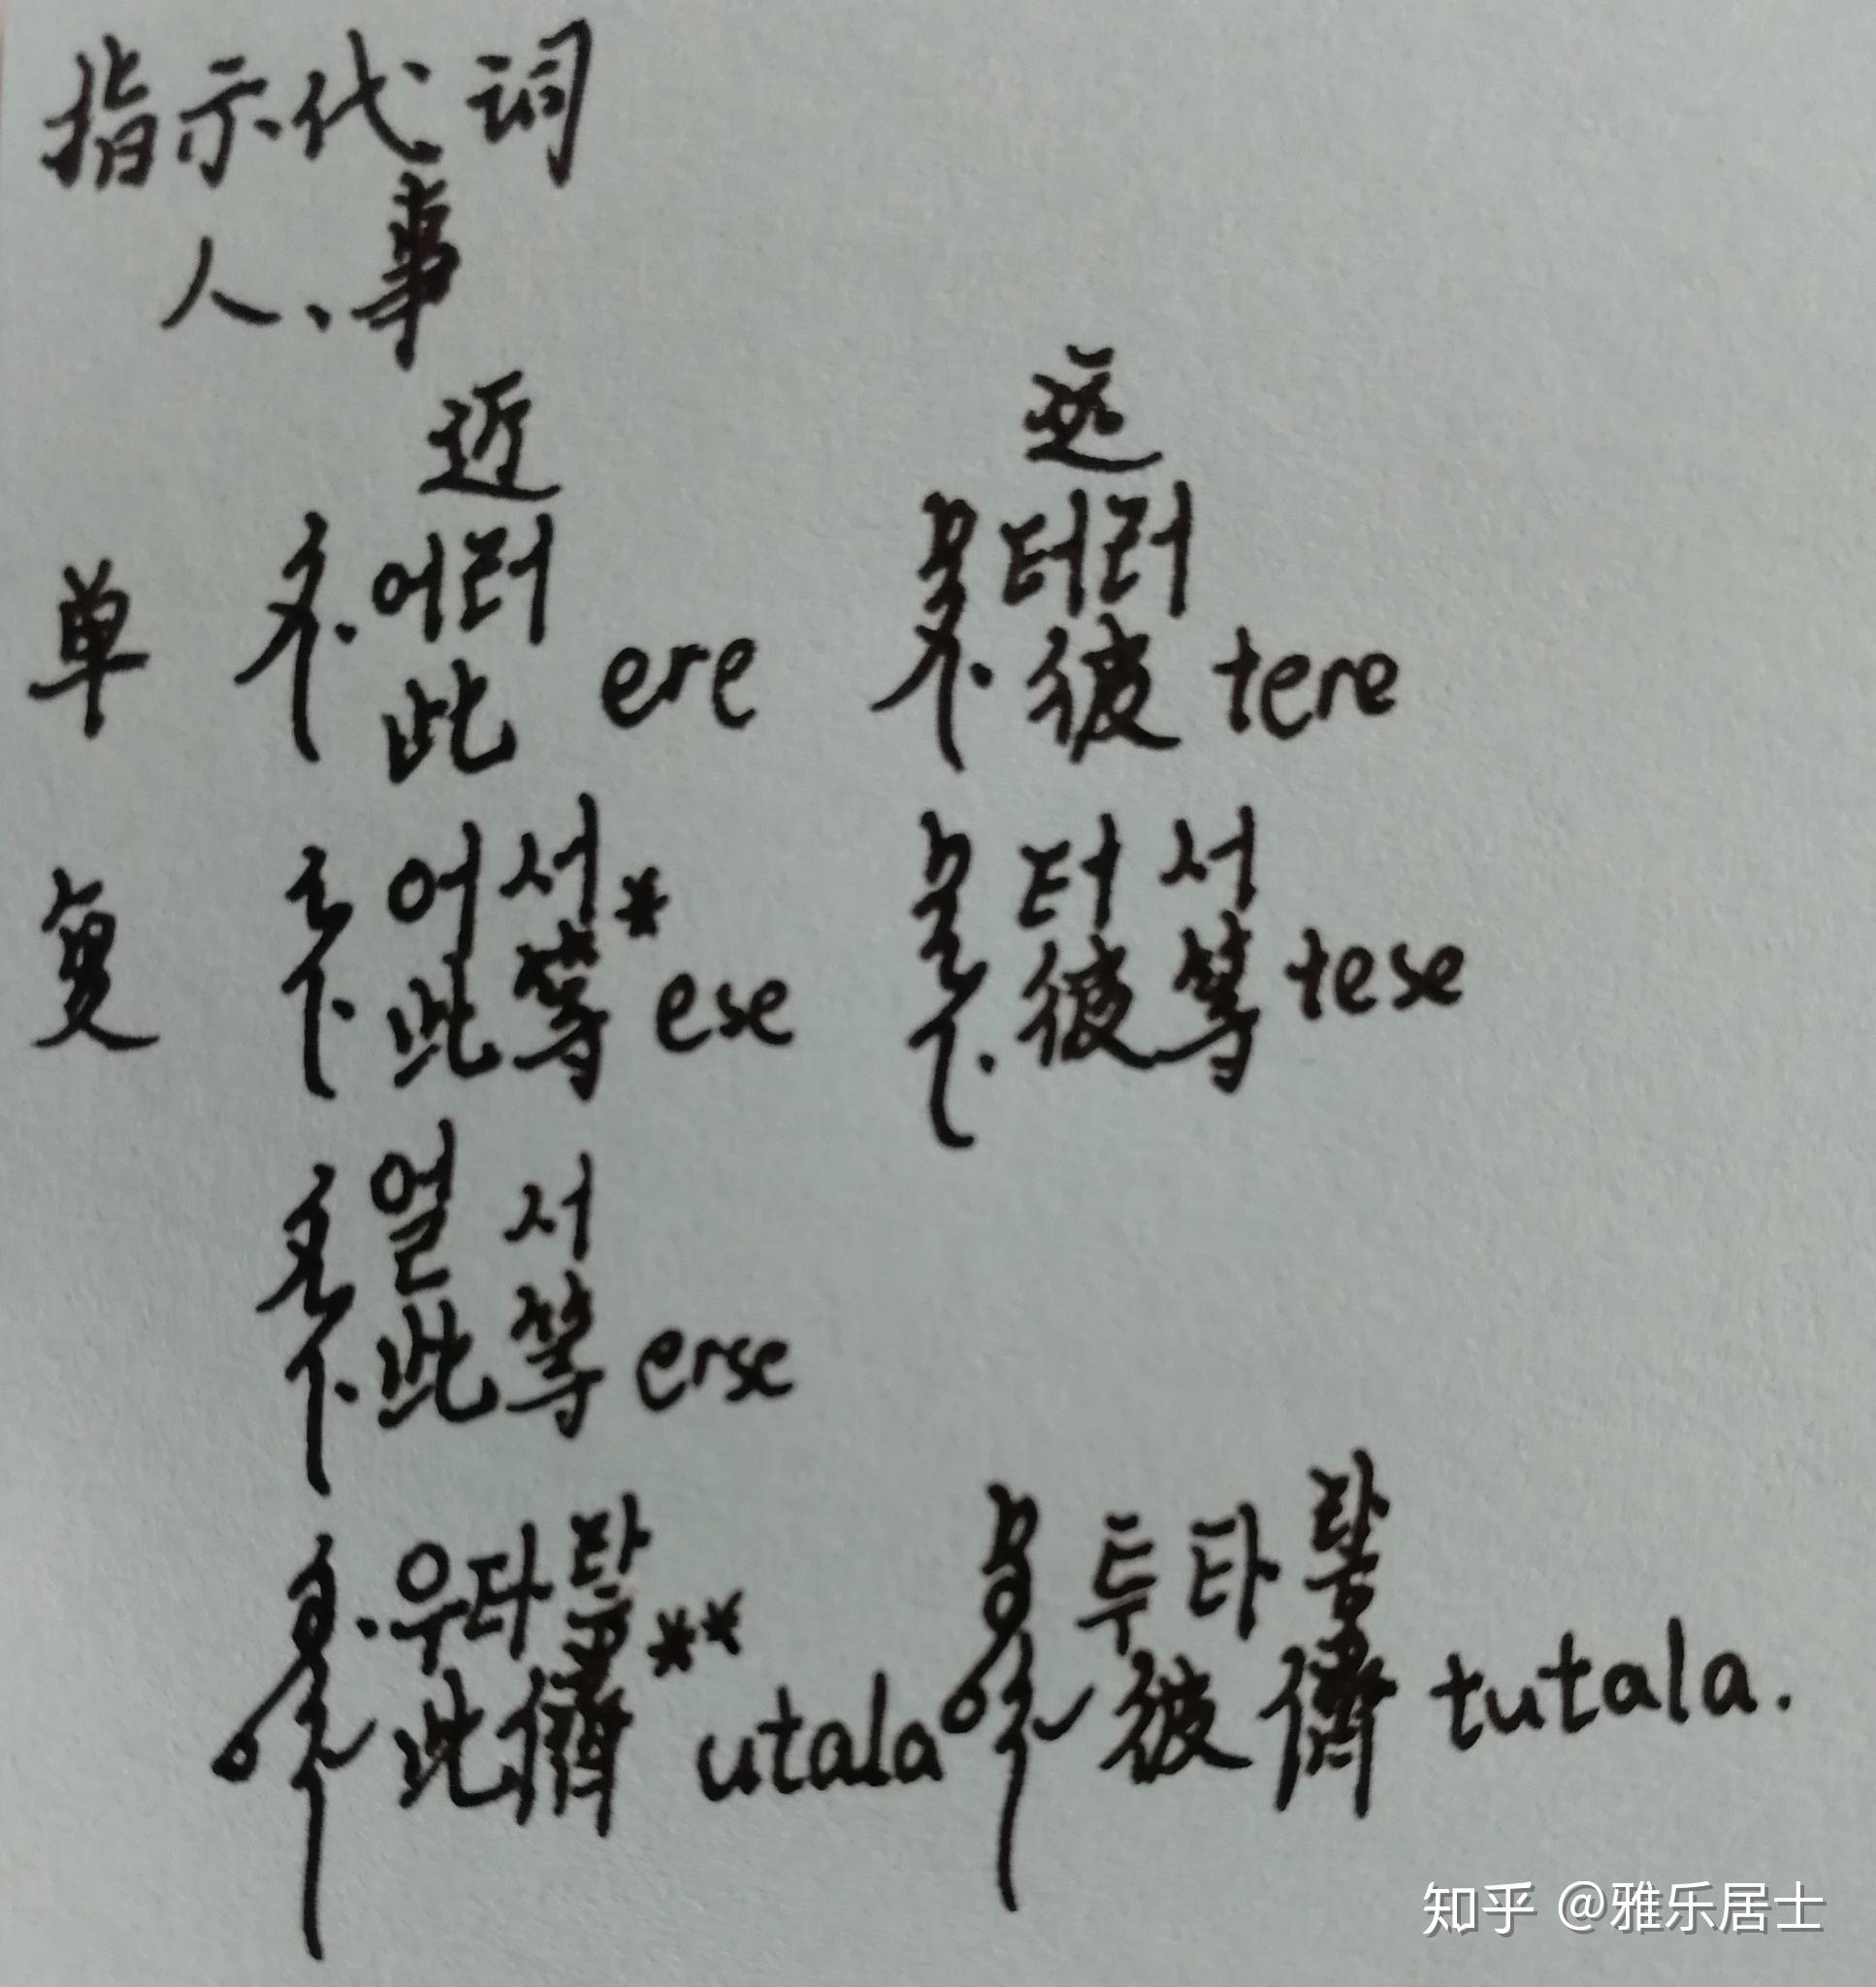 指示代词
人、事
近 远
单 ᡝᡵᡝ 어러 此 ere ᡨᡝᡵᡝ 터러 彼 tere
复 ᡝᠰᡝ 어서* 此等 ese ᡨᡝᠰᡝ 터서 彼等 tese
ᡝᡵᠰᡝ 얼서 此等 erse
우타 此儕** utala 투타 彼儕 tutala.
知乎 @雅乐居士